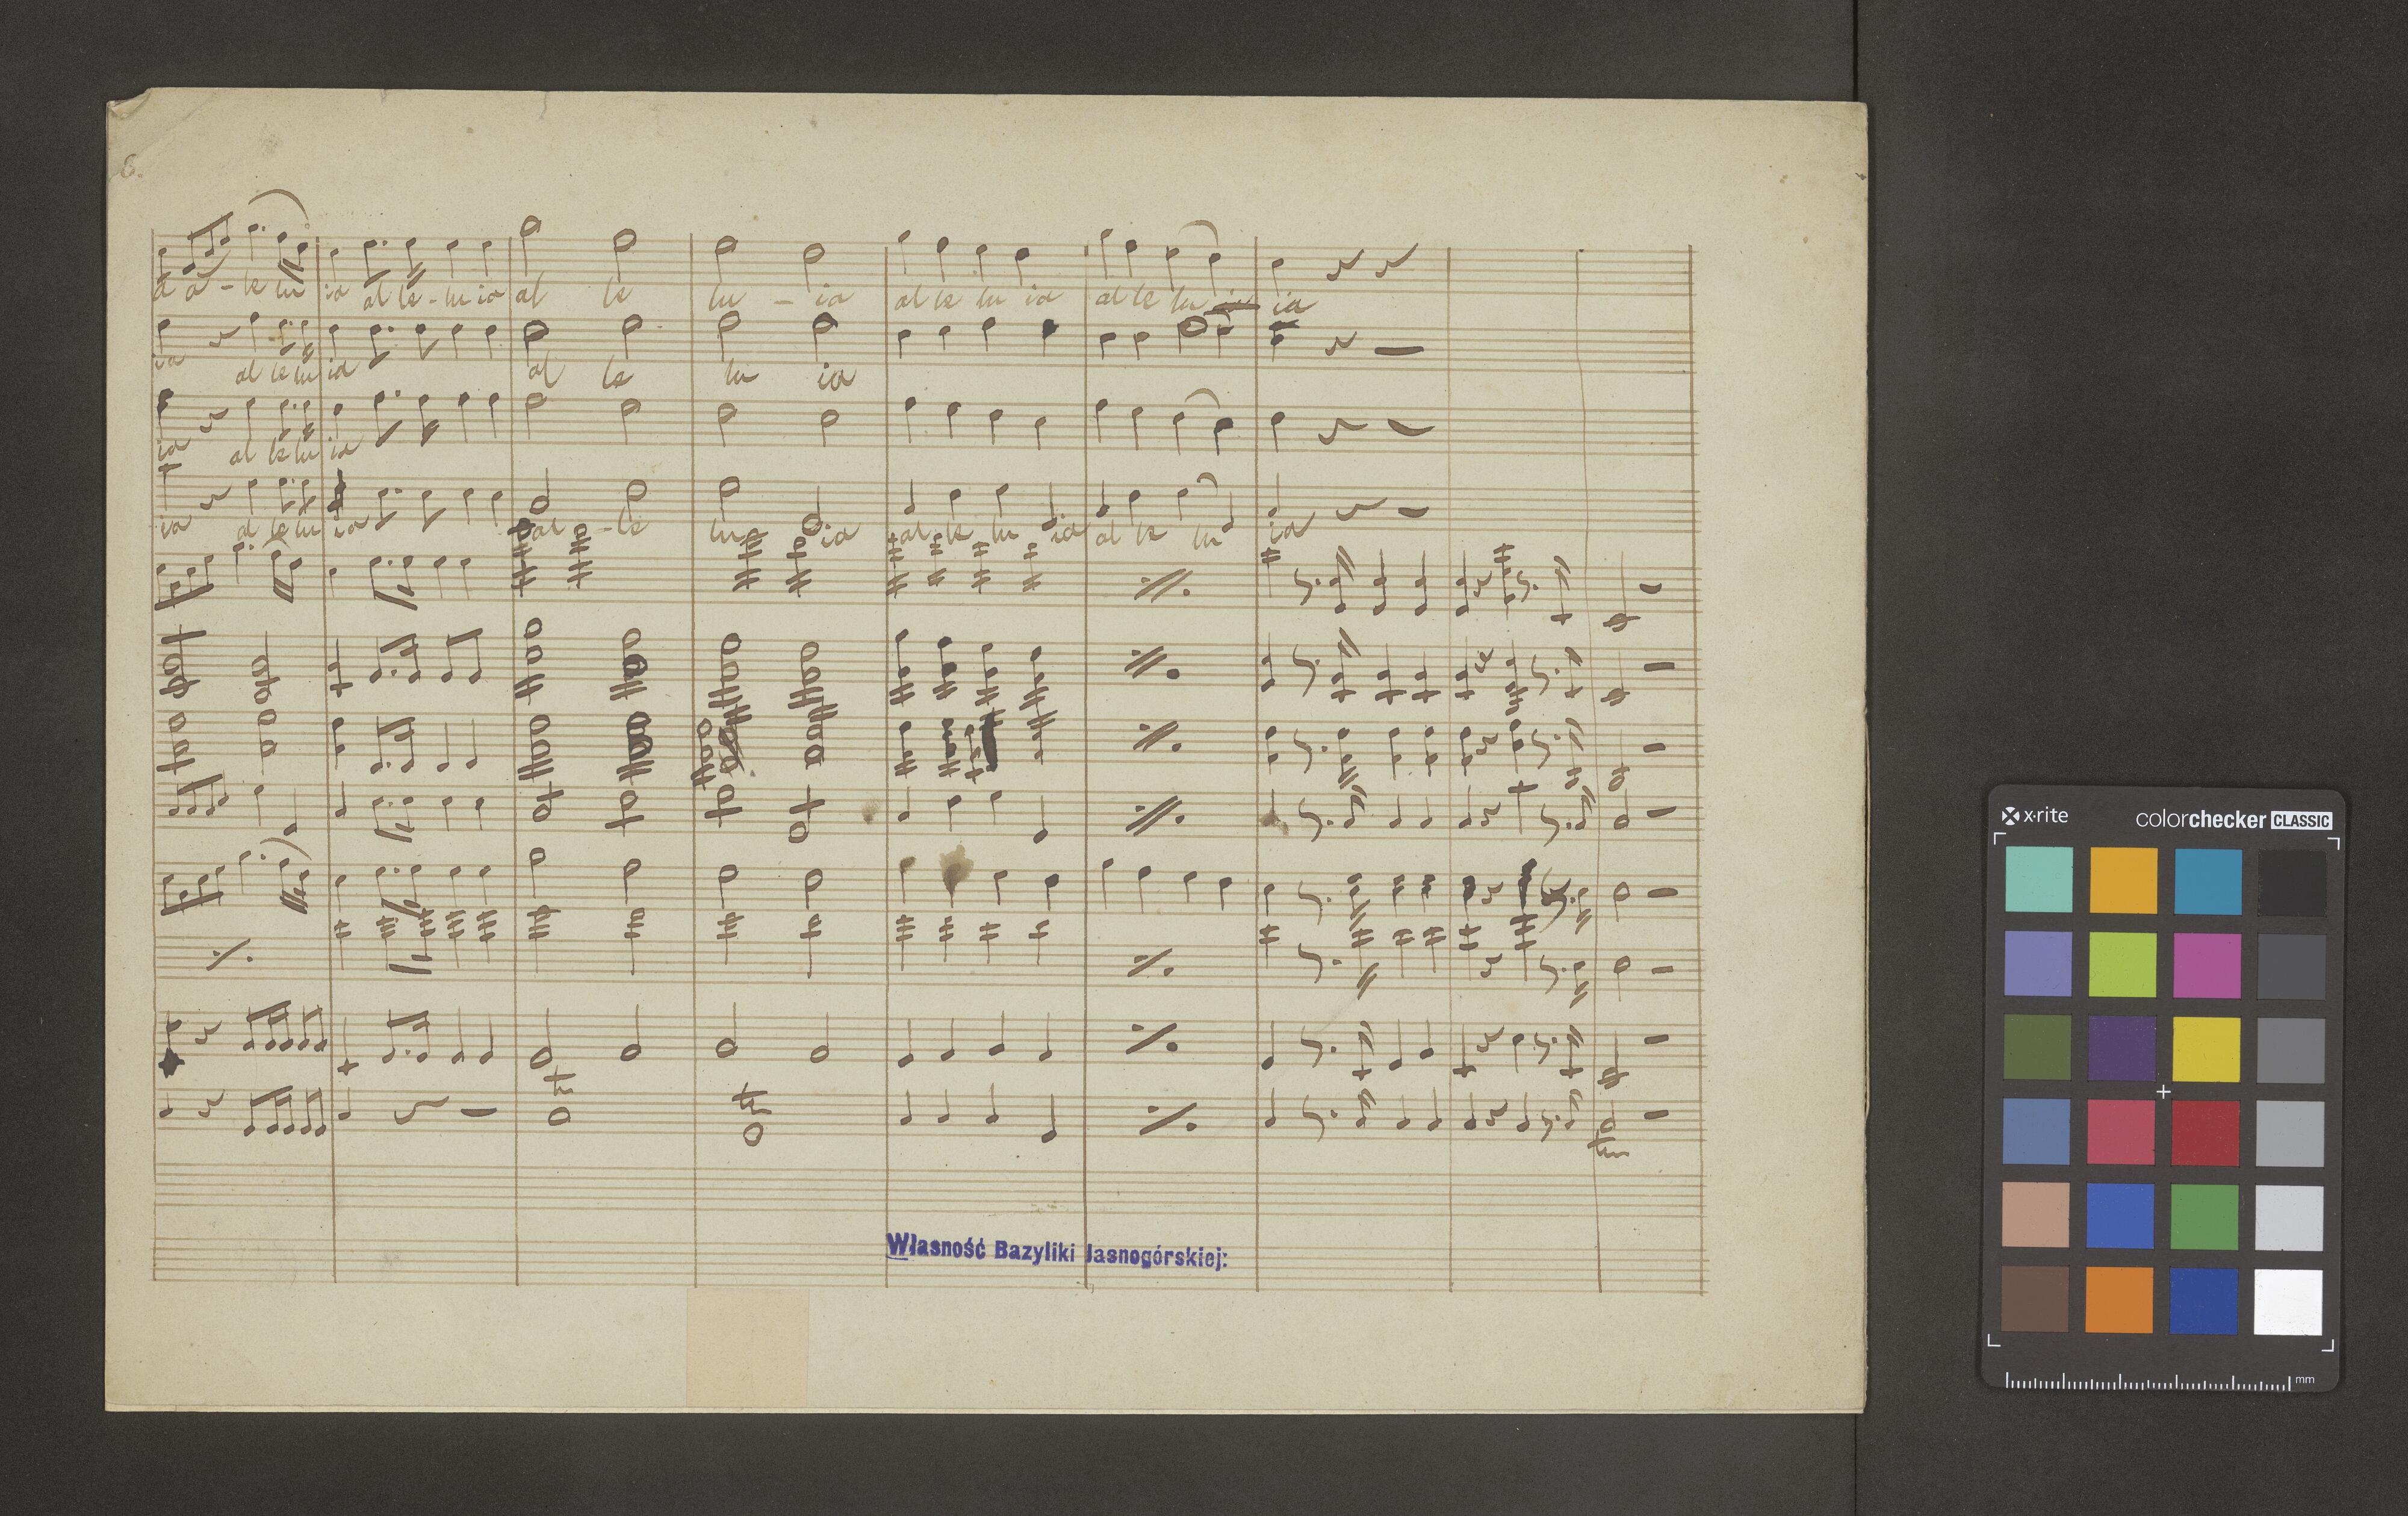 6.
a a - le lu ia al le - lu ia al le lu - ia al le lu ia al le lu ia
ia al le lu ia al le lu ia
ia al le lu ia
ia al le lu ia al - le lu ia al le lu ia al le lu ia
tr tr
tr
Własność Bazyliki Jasnogórskiej:
x-rite
colorchecker CLASSIC
mm